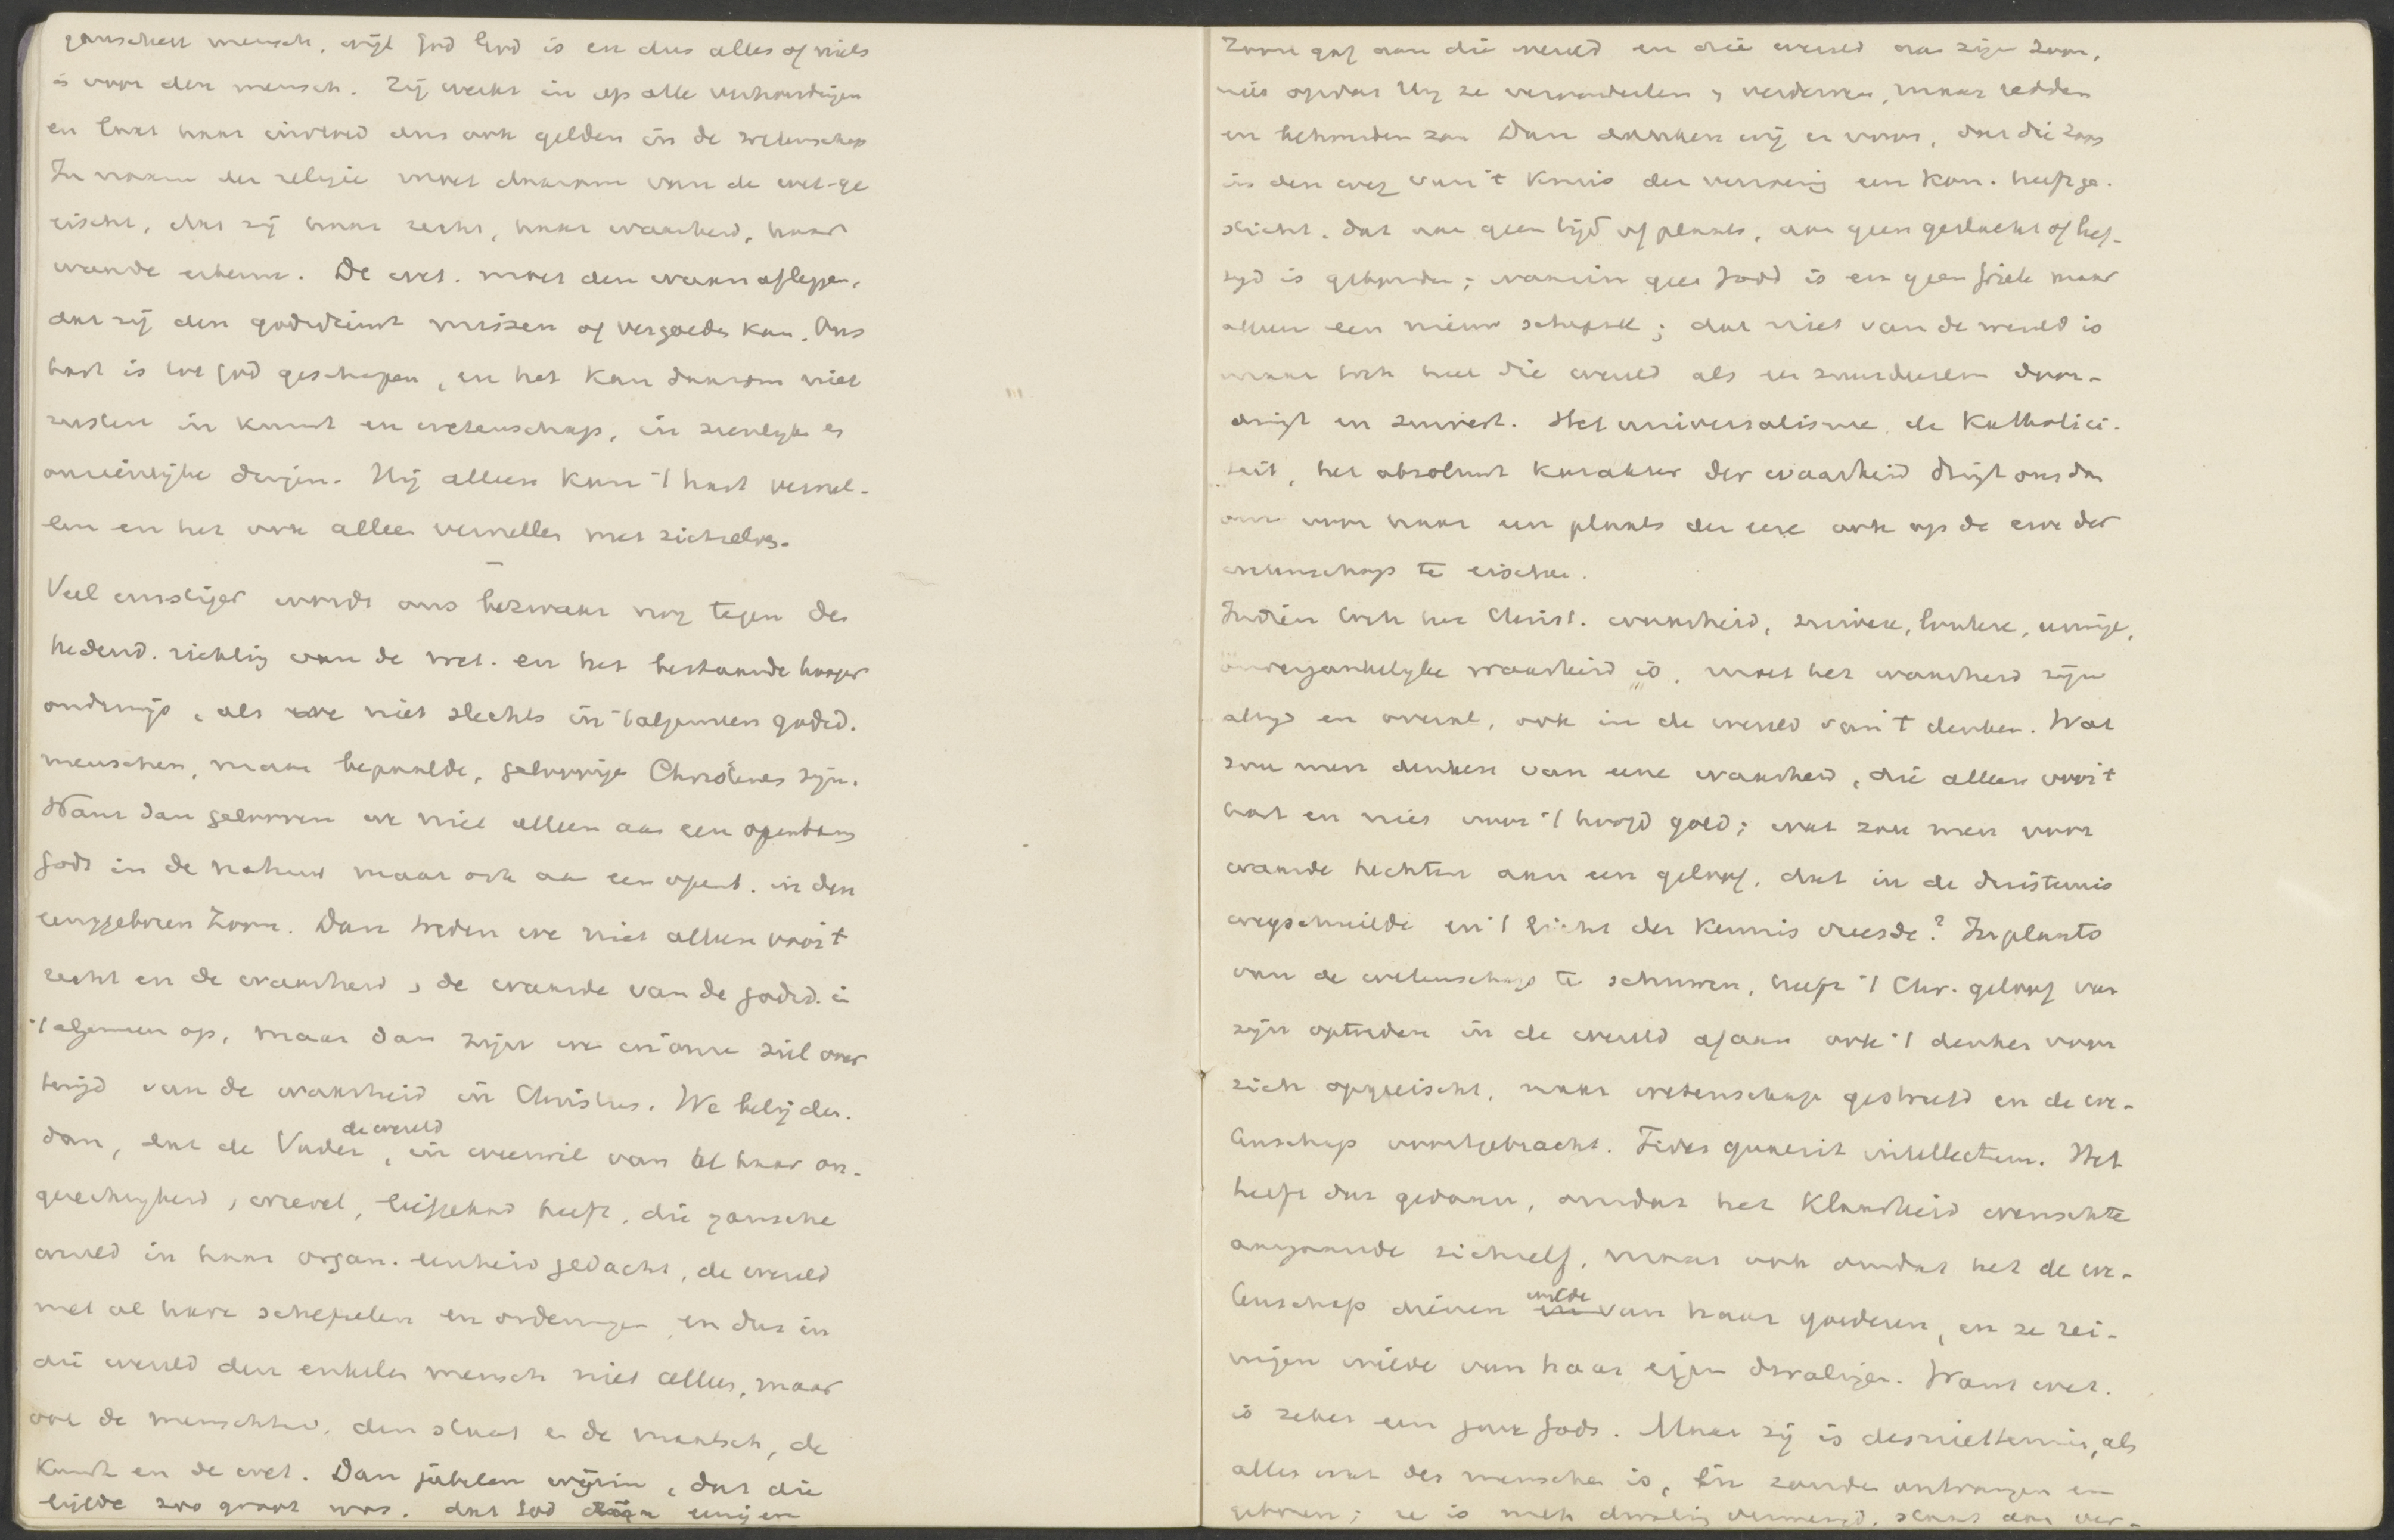 ganschen mensch, wijl God God is en dus alles of niets
is voor den mensch. Zij werkt in op alle verhoudingen
en laat haar invloed dus ook gelden in de wetenschap
In naam der religie moet daarom van de wet. ge-
eischt, dat zij haar recht, haar waarheid, haar
waarde erkenne. De wet. moet den waan afleggen,
dat zij den godsdienst missen of vergoeden kan. Ons
hart is tot God geschapen, en het kan daarom niet
rusten in kunst en wetenschap, in zienlijke en
onzienlijke dingen. Hij alleen kan 't hart vervul-
len en het ook alleen vervullen met zichzelven.
Veel ernstiger wordt ons bezwaar nog tegen de
hedend. richting van de wet. en het bestaande hooger
onderwijs, als we niet slechts in 't algemeen godsd.
menschen, maar bepaalde, geloovige Christenen zijn.
Want dan gelooven we niet alleen aan een openbaring
Gods in de natuur maar ook aan een openb. in den
eengeboren Zoon. Dan treden we niet alleen voor 't
recht en de waarheid, de waarde van de godsd. in
't algemeen op, maar dan zijn we in onze ziel over-
tuigd van de waarheid in Christus. We belijden
dan, dat de Vader de wereld, in weerwil van al haar on-
gerechtigheid, wrevel, liefgehad heeft, die gansche
wereld in haar organ. eenheid gedacht, de wereld
met al hare schepselen en ordeningen en dus in
die wereld den enkelen mensch niet alleen, maar
ook de menschheid, den staat en de maatsch., de
kunst en de wet. Dan jubelen wij erin, dat die
liefde zoo groot was, dat God zijn eenigen
Zoon gaf aan die wereld en die wereld aan zijn Zoon,
niet opdat Hij ze veroordeelen, verderven, maar redden
en behouden zou. Dan danken wij er voor, dat die Zoon
in den weg van 't kruis der verzoening een Kon. heeft ge-
sticht, dat aan geen tijd of plaats, aan geen geslacht of leef-
tijd is gebonden; waarin geen Jood is en geen Griek maar
alleen een nieuw schepsel; dat niet van de wereld is
maar toch heel die wereld als een zuurdeesem door-
dringt en zuivert. Het universalisme, de Katholici-
teit, het absoluut karakter der waarheid dringt ons dan
om voor haar een plaats der eere ook op de erve der
wetenschap te eischen.
Indien toch het Christ. waarheid, zuivere, loutere, eeuwige,
onvergankelijke waarheid is, moet het waarheid zijn
altijd en overal, ook in de wereld van 't denken. Wat
zou men denken van eene waarheid, die alleen voor 't
hart en niet voor 't hoofd gold; wat zou men voor
waarde hechten aan een geloof, dat in de duisternis
wegschuilde en 't licht der kennis vreesde? In plaats
van de wetenschap te schuwen, heeft 't Chr. geloof van
zijn optreden in de wereld af aan ook 't denken voor
zich opgeëischt, naar wetenschap gestreefd en de we-
tenschap voortgebracht. Fides quaerit intellectum. Het
heeft dat gedaan, omdat het klaarheid wenschte
aangaande zichzelf, maar ook omdat het de we-
tenschap dienen wilde van haar goederen, en ze rei-
nigen wilde van haar eigen dwalingen. Want wet.
is zeker een gave Gods. Maar zij is desniettemin, als
alles wat des menschen is, in zonde ontvangen en
geboren; ze is met dwaling vermengd, staat aan ver-